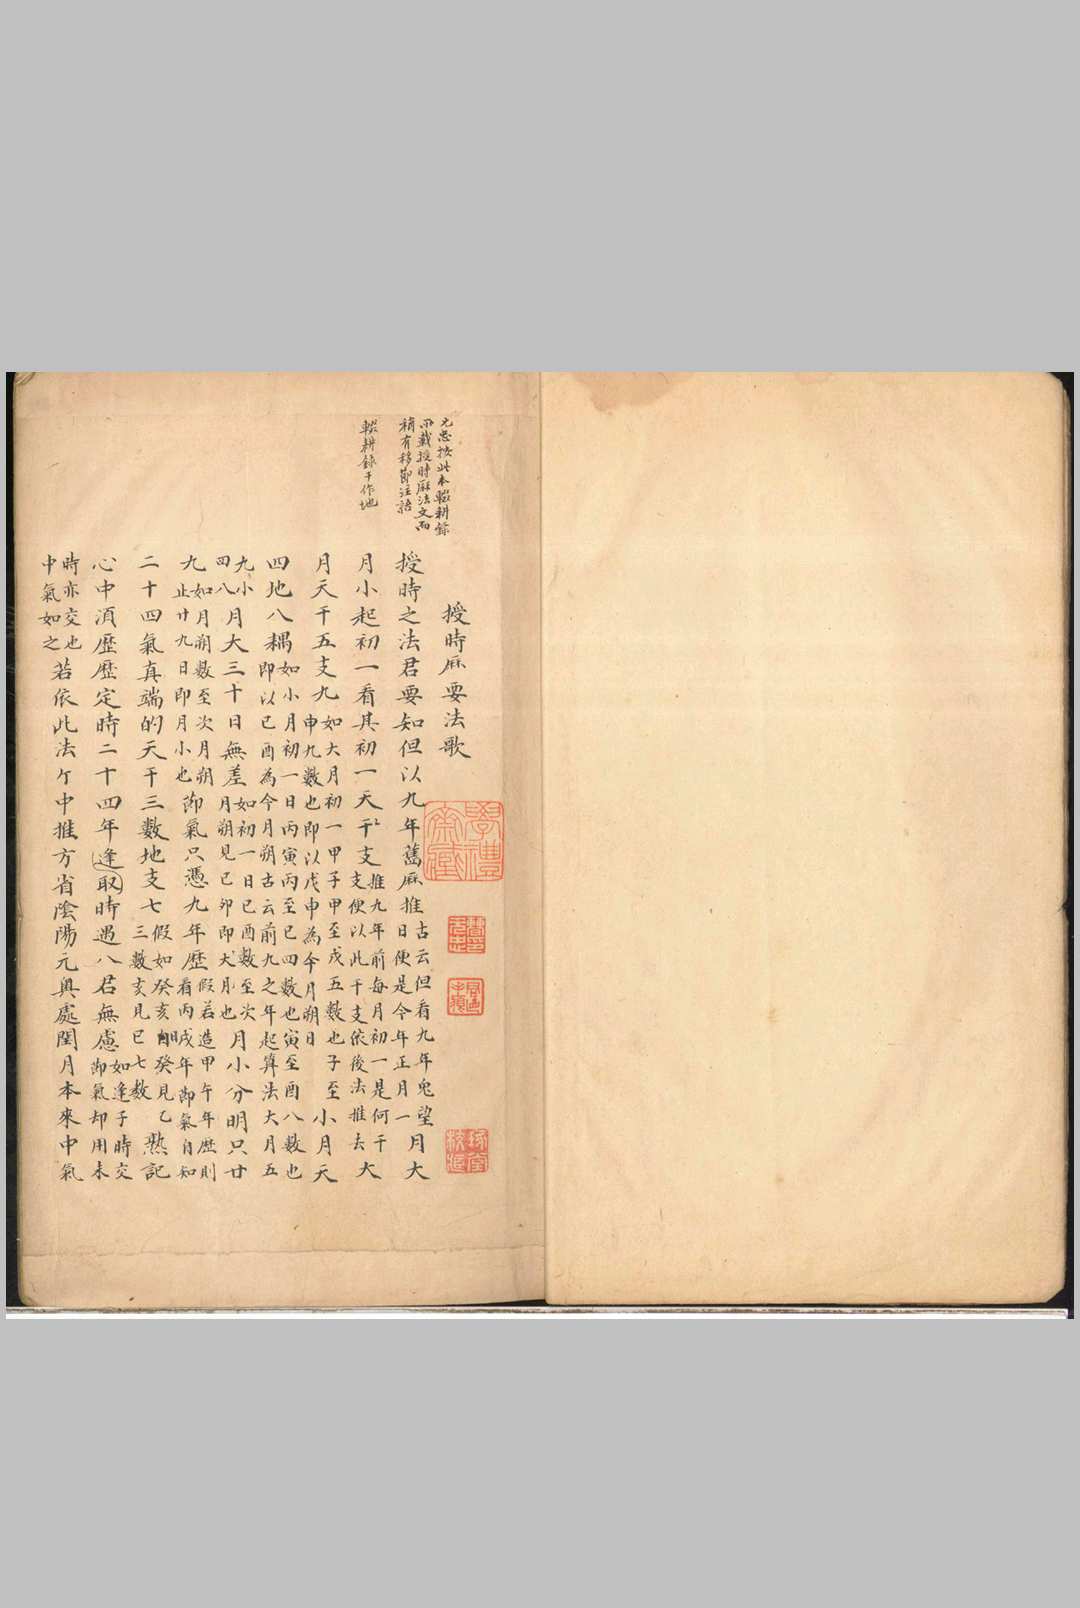 元忠按此本輟耕錄
所載授時厤法文而
稍有移節注語
輟耕錄干作地
授時厤要法歌
授時之法君要知但以九年舊厤推古云但看九年鬼望月大
日便是今年正月一
月小起初一看其初一天干支推九年前每月初一是何干
支便以此干支依後法推去大
月天干五支九如大月初一甲子甲至戊五數也子至
申九數也即以戊申為今月朔日小月天
四地八耦如小月初一日丙寅丙至己四數也寅至酉八數也
即以己酉為今月朔古云前九之年起算法大月五
九小
四八月大三十日無差如初一日己酉數至次
月朔見己卯即大月也月小分明只廿
九如月朔數至次月朔
止廿九日即月小也節氣只憑九年歷假若造甲午年歷則
看丙戌年節氣自知
二十四氣真端的天干三數地支七假如癸亥自癸見乙
三數亥見巳七數熟記
心中須歷歷定時二十四年逢取時遇八君無慮如逢子時交
節氣却用未
時亦交也
中氣如之若依此法ケ中推方省陰陽元奧處閏月本來中氣